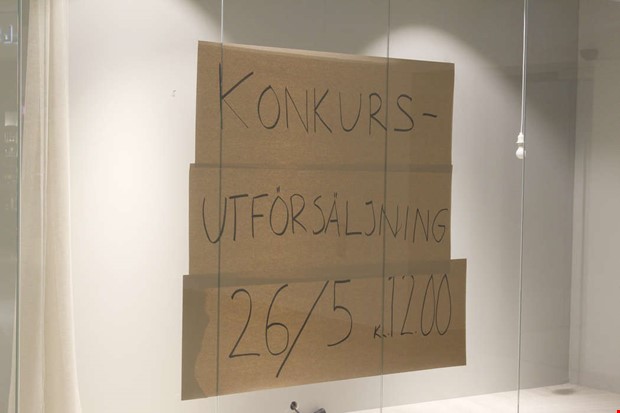 KONKURS-
UTFÖRSÄLJNING
26/5 KL.12.00